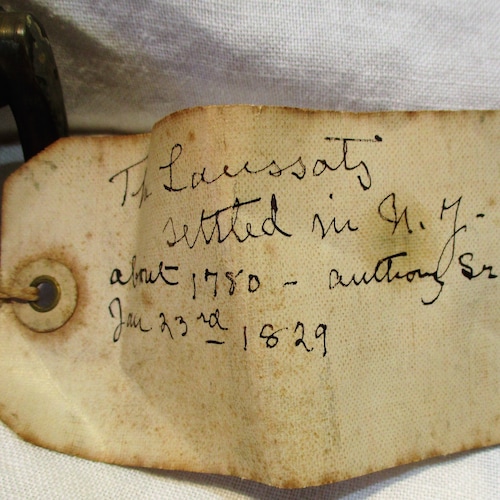 The Laussats
settled in N. Y. -
about 1780 - anthony Sr
Jan 23rd 1829